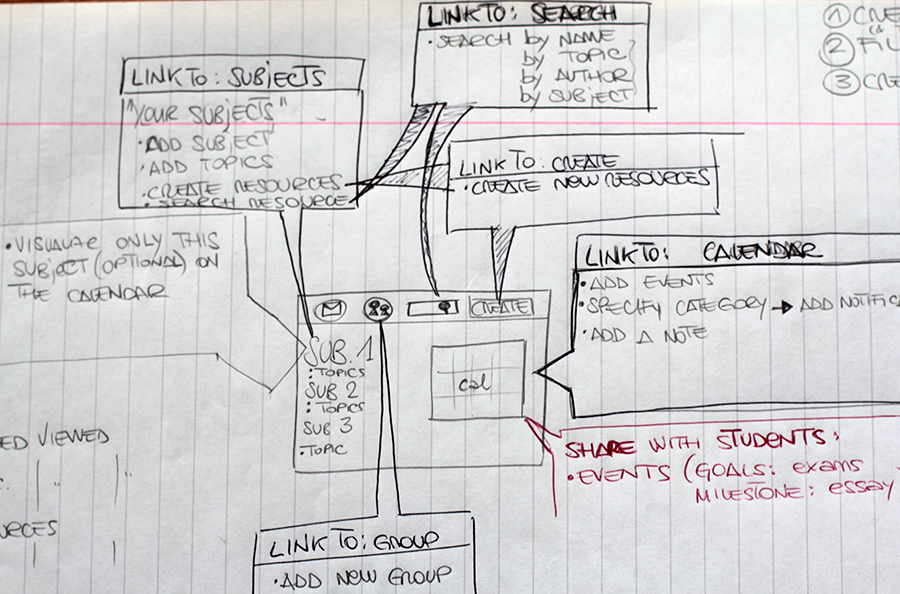 LINK TO: SEARCH
• SEARCH by NAME
by TOPIC
by AUTHOR
by SUBJECT
1
2
3 CRE
LINK TO: SUBJECTS
"YOUR SUBJECTS"
• ADD SUBJECT
• ADD TOPICS
• CREATE RESOURCES
• SEARCH RESOURCE
LINK TO: CREATE
• CREATE NEW RESOURCES
• VISUALIZE ONLY THIS
SUBJECT (OPTIONAL) ON
THE CALENDAR
LINK TO: CALENDAR
• ADD EVENTS
• SPECIFY CATEGORY → ADD NOTIFICA
• ADD A NOTE
CREATE
SUB. 1
: TOPICS
SUB 2
: TOPICS
SUB 3
• TOPIC
cal
SHARE WITH STUDENTS:
• EVENTS (GOALS: exams
MILESTONE: essay
ED VIEWED
URCES
LINK TO: GROUP
• ADD NEW GROUP